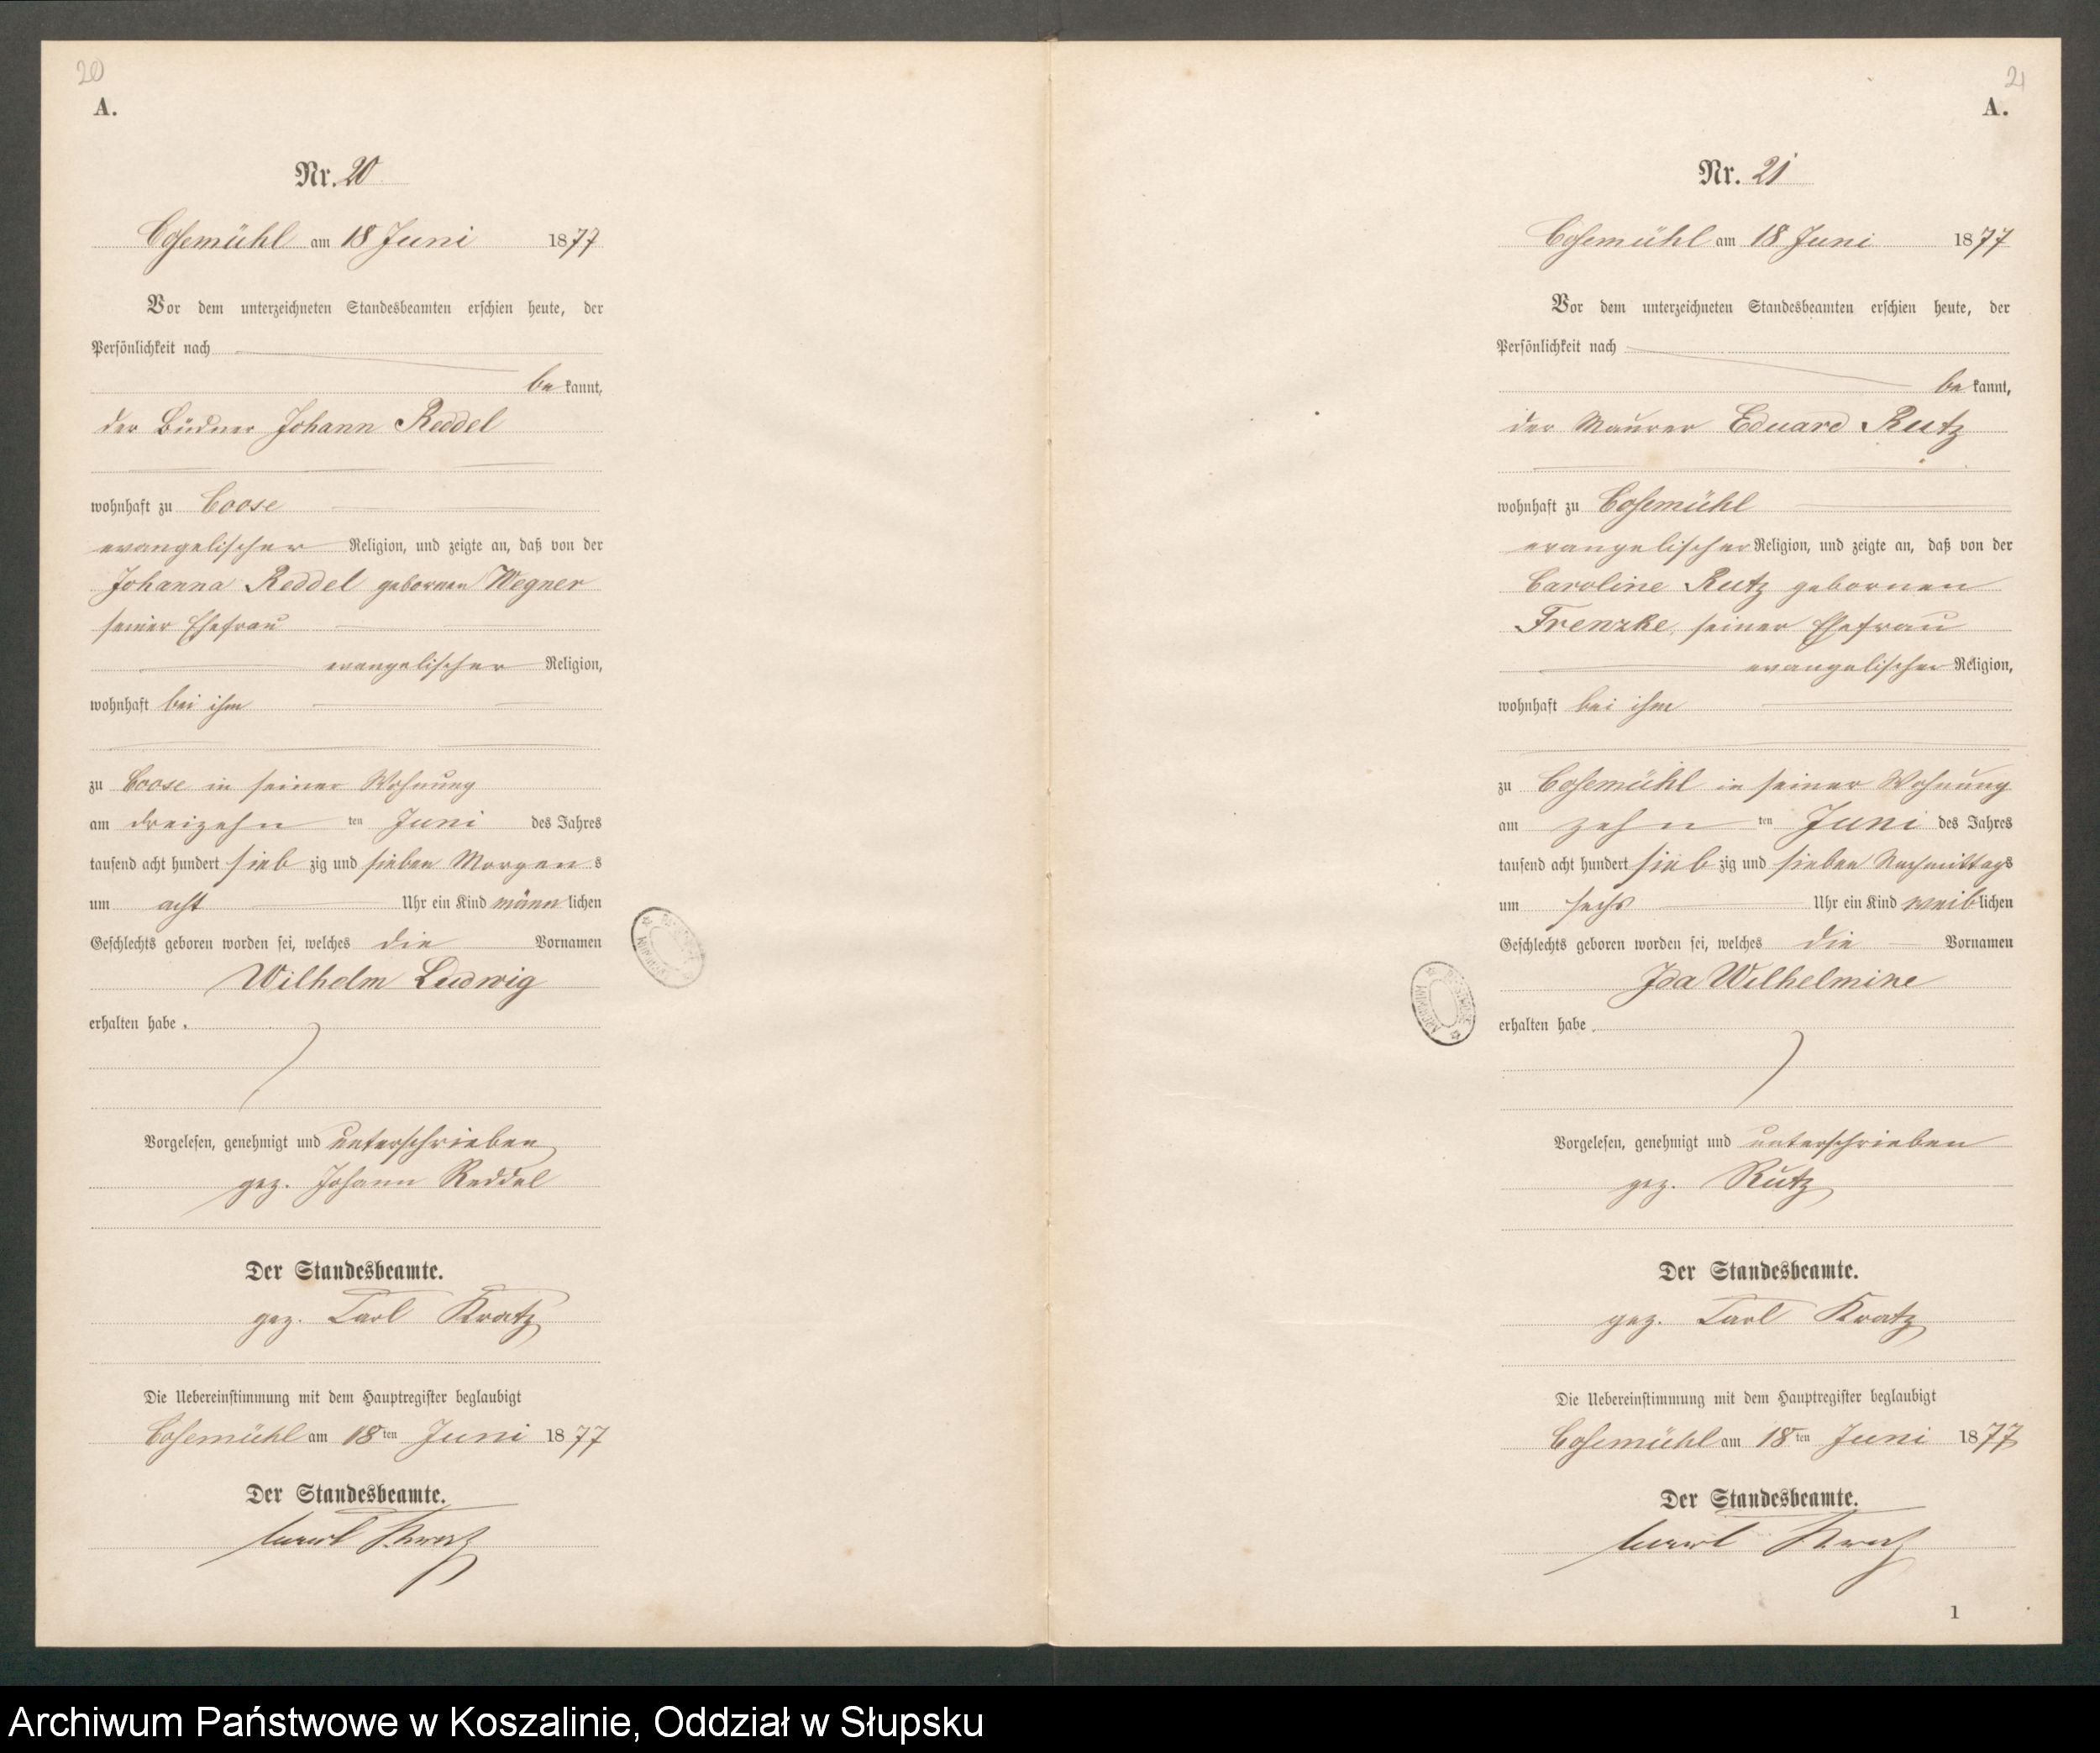 20
A.
Nr. 20
Cosemühl am 18 Juni 1877
Vor dem unterzeichneten Standesbeamten erschien heute, der
Persönlichkeit nach
be kannt,
der Büdner Johann Reddel
wohnhaft zu Coose
evangelischer Religion, und zeigte an, daß von der
Johanna Reddel gebornen Wegner
seiner Ehefrau
evangelischer Religion,
wohnhaft bei ihm
zu Coose in seiner Wohnung
am dreizehn ten Juni des Jahres
tausend acht hundert sieb zig und sieben Morgen s
um acht Uhr ein Kind männ lichen
Geschlechts geboren worden sei, welches die Vornamen
Wilhelm Ludwig
erhalten habe.
Vorgelesen, genehmigt und unterschrieben
gez. Johann Reddel
Der Standesbeamte.
gez. Carl Kratz
Die Uebereinstimmung mit dem Hauptregister beglaubigt
Cosemühl am 18ten Juni 1877
Der Standesbeamte.
Carl Kratz
21
A.
Nr. 21
Cosemühl am 18 Juni 1877
Vor dem unterzeichneten Standesbeamten erschien heute, der
Persönlichkeit nach
be kannt,
der Maurer Eduard Rutz
wohnhaft zu Cosemühl
evangelischer Religion, und zeigte an, daß von der
Caroline Rutz gebornen
Frenzke, seiner Ehefrau
evangelischer Religion,
wohnhaft bei ihm
zu Cosemühl in seiner Wohnung
am zehn ten Juni des Jahres
tausend acht hundert sieb zig und sieben Nachmittags
um sechs Uhr ein Kind weib lichen
Geschlechts geboren worden sei, welches die Vornamen
Ida Wilhelmine
erhalten habe.
Vorgelesen, genehmigt und unterschrieben
gez. Rutz
Der Standesbeamte.
gez. Carl Kratz
Die Uebereinstimmung mit dem Hauptregister beglaubigt
Cosemühl am 18ten Juni 1877
Der Standesbeamte.
Carl Kratz
1
Archiwum Państwowe w Koszalinie, Oddział w Słupsku